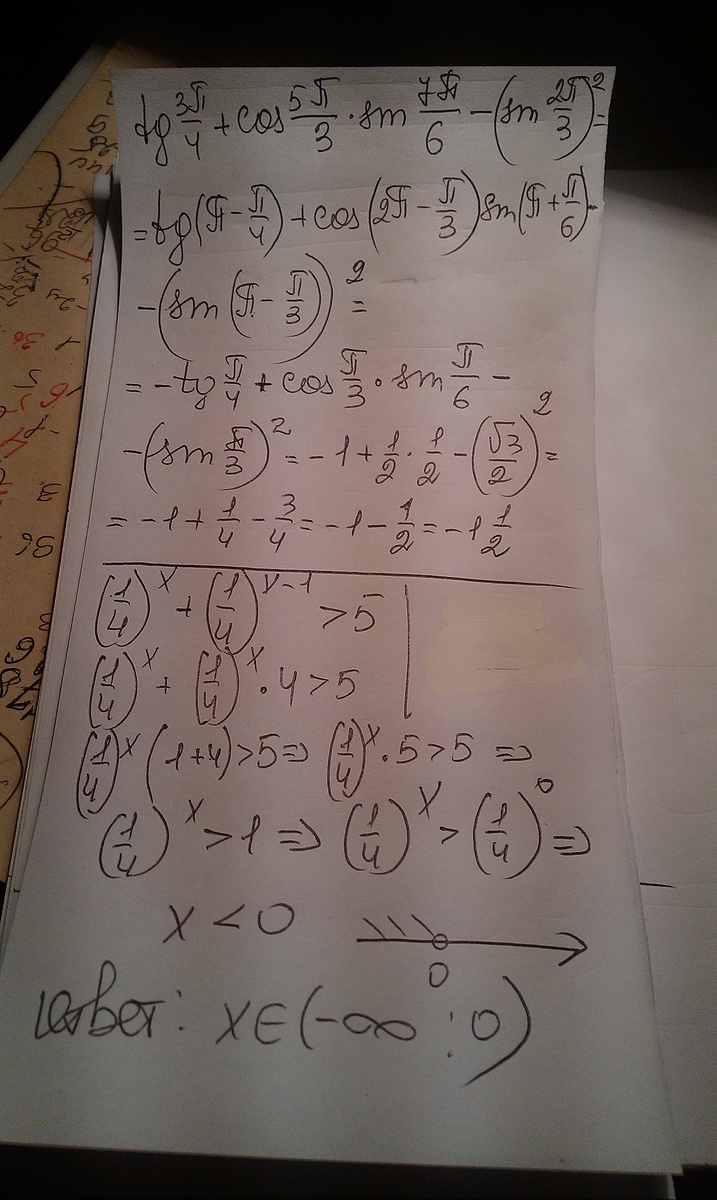 tg 3π/4 + cos 5π/3 · sin 7π/6 − (sin 2π/3)² =
= tg(π − π/4) + cos(2π − π/3) sin(π + π/6) −
− (sin(π − π/3))² =
= −tg π/4 + cos π/3 · sin π/6 −
− (sin π/3)² = −1 + 1/2 · 1/2 − (√3/2)² =
= −1 + 1/4 − 3/4 = −1 − 1/2 = −1 1/2
(1/4)^x + (1/4)^(x−1) > 5
(1/4)^x + (1/4)^x · 4 > 5
(1/4)^x (1+4) > 5 ⇒ (1/4)^x · 5 > 5 ⇒
(1/4)^x > 1 ⇒ (1/4)^x > (1/4)^0 ⇒
x < 0
0
Ответ: x ∈ (−∞ ; 0)